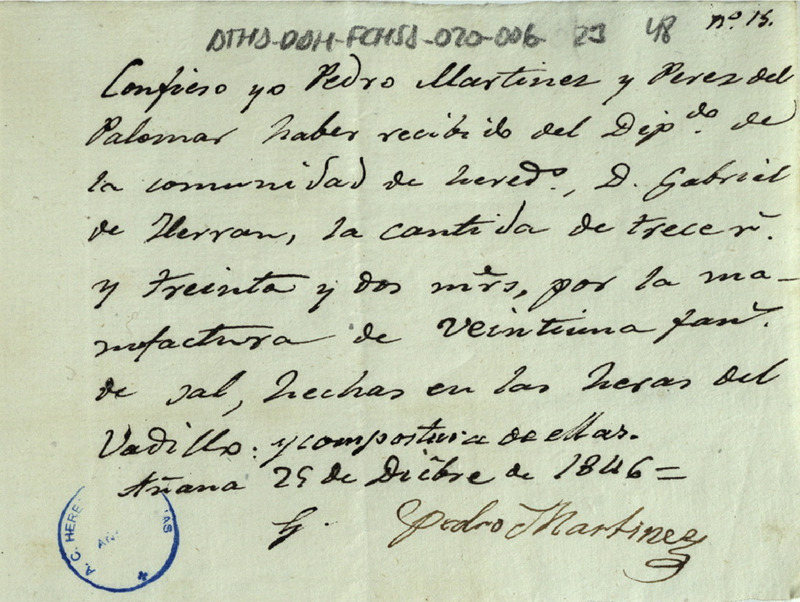 DTHJ-DDH-FCHSJ-020-006 23 48 nº. 15.
Confieso yo Pedro Martinez y Perez del
Palomar haber recibido del Dipdo. de
la comunidad de heredos., D. Gabriel
de Herran, la cantida de trece rs.
y treinta y dos mrs, por la ma-
nufactura de veintiuna fans.
de sal, hechas en las heras del
Vadillo. y compostura de ellas.
Añana 25 de Dicbre de 1846=
Pedro Martinez
A. C. HERE
AN